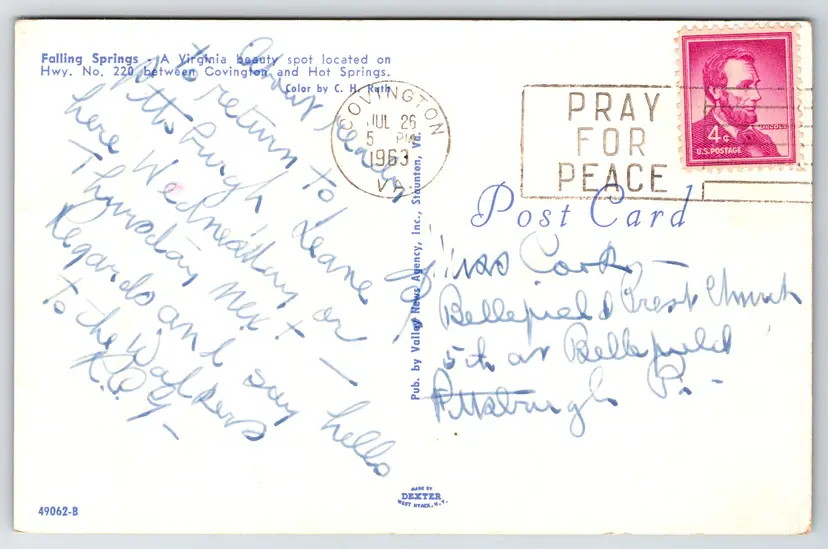 Falling Springs - A Virginia beauty spot located on
Hwy. No. 220 between Covington and Hot Springs.
Color by C. H. Ruth
About ready
to return to
Pittsburgh,
Leave
here Wednesday or
Thursday next —
Regards and say hello
to the Walkers
R.O.Y—
COVINGTON
JUL 26
5 PM
1963
VA.
PRAY
FOR
PEACE
LINCOLN
4¢
U.S. POSTAGE
Post Card
Pub. by Valley News Agency, Inc., Staunton, Va.
Miss Corky —
Bellefield Prest Church
5th at Bellefield
Pittsburgh Pa-
MADE BY
DEXTER
WEST NYACK, N.Y.
49062-B